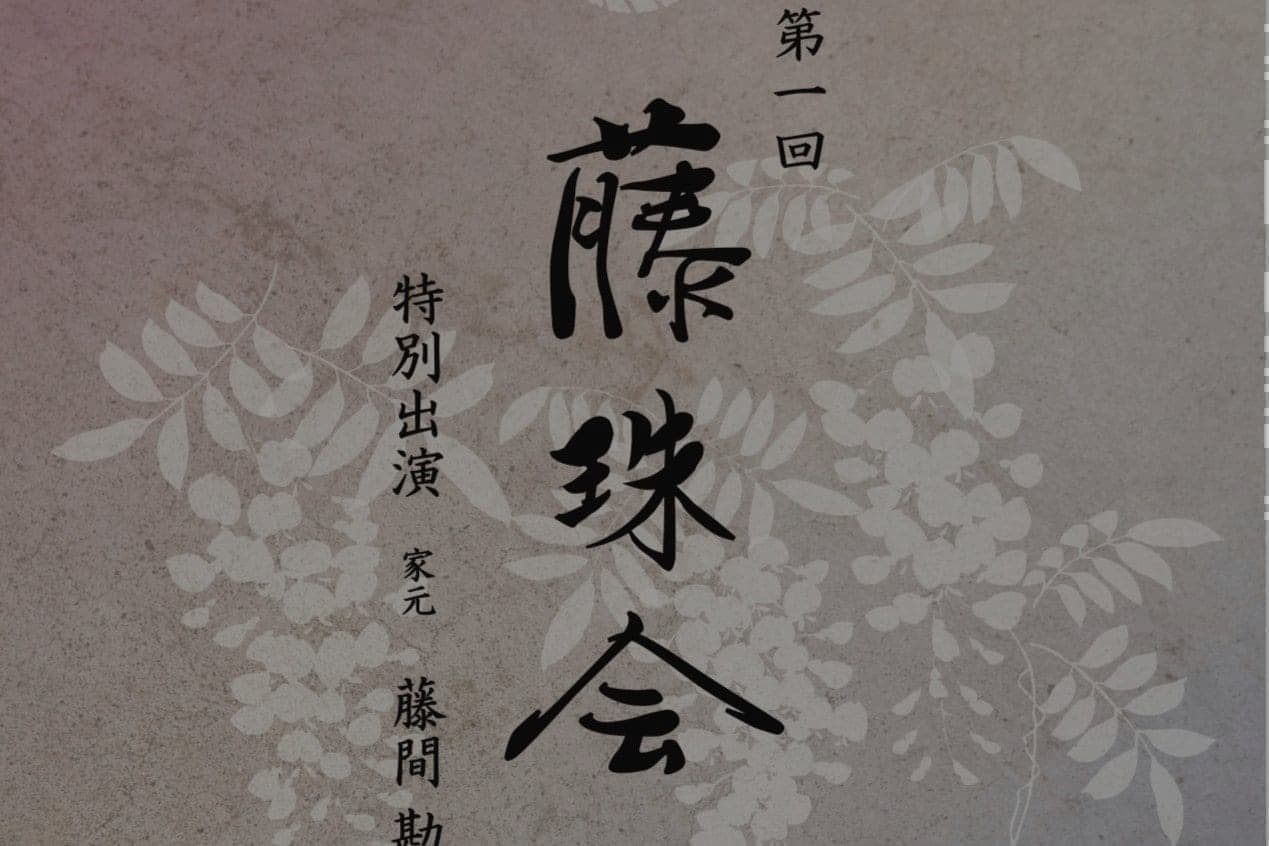 第一回
藤珠会
特別出演 家元 藤間 勘